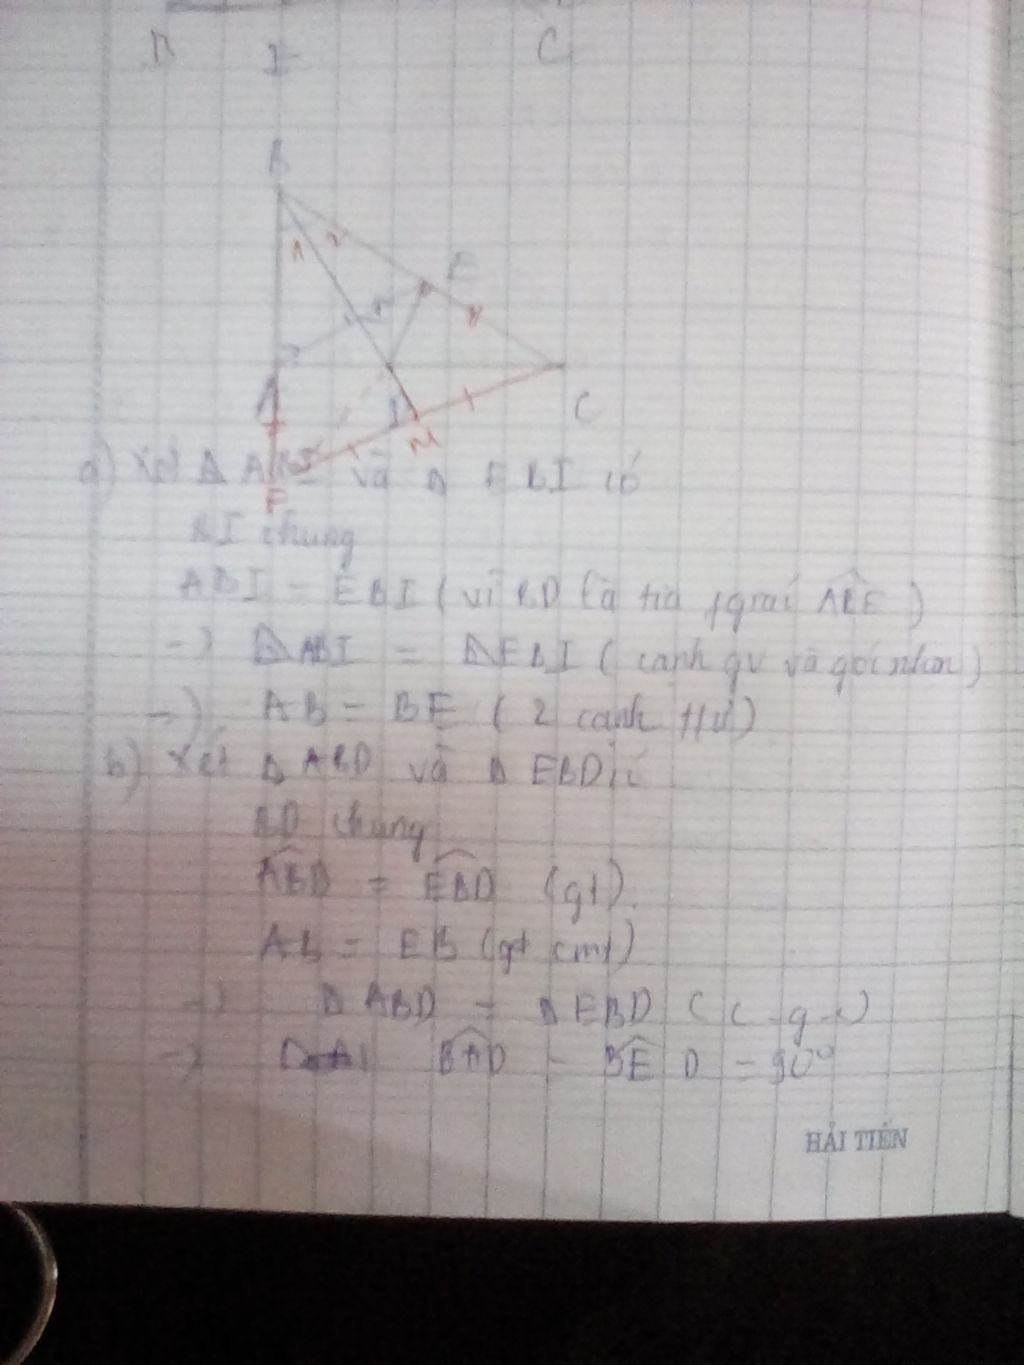 I C
B
1 2
E
I
A
D C
M
F
a) Xét Δ ABI và Δ EBI có
BI chung
ABI = EBI ( vì BD là tia p/giác ABE )
=> ΔABI = ΔEBI ( cạnh gv và góc nhọn )
=> AB = BE ( 2 cạnh t/ứ )
b) Xét Δ ABD và Δ EBD có
BD chung
ABD = EBD (gt)
AB = EB ( cmt)
=> Δ ABD = Δ EBD ( c - g - c )
=> BAD = BED = 90°
HẢI TIẾN